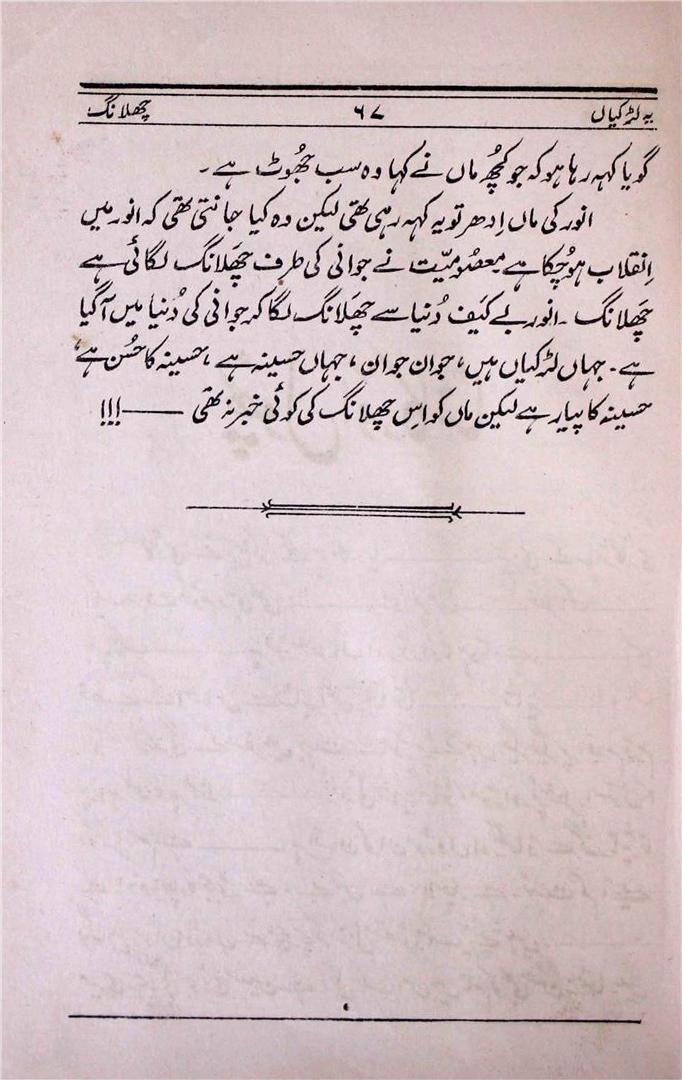 یہ لڑکیاں ۶۷ چھلانگ
گویا کہہ رہا ہو کہ جو کچُھ ماں نے کہا وہ سب جُھوٹ ہے۔
انور کی ماں اِدھر تو یہ کہہ رہی تھی لیکن وہ کیا جانتی تھی کہ انور میں
اِنقلاب ہو چُکا ہے معصُومیّت نے جوانی کی طرف چَھلانگ لگائی ہے
چَھلانگ ۔ انور بے کَیف دُنیا سے چَھلانگ لگا کر جوانی کی دُنیا میں آ گیا
ہے۔ جہاں لڑکیاں ہیں، جوان جوان، جہاں حسینہ ہے، حسینہ کا حُسن ہے،
حسینہ کا پیار ہے لیکن ماں کو اس چھلانگ کی کوئی خبر نہ تھی ——!!!